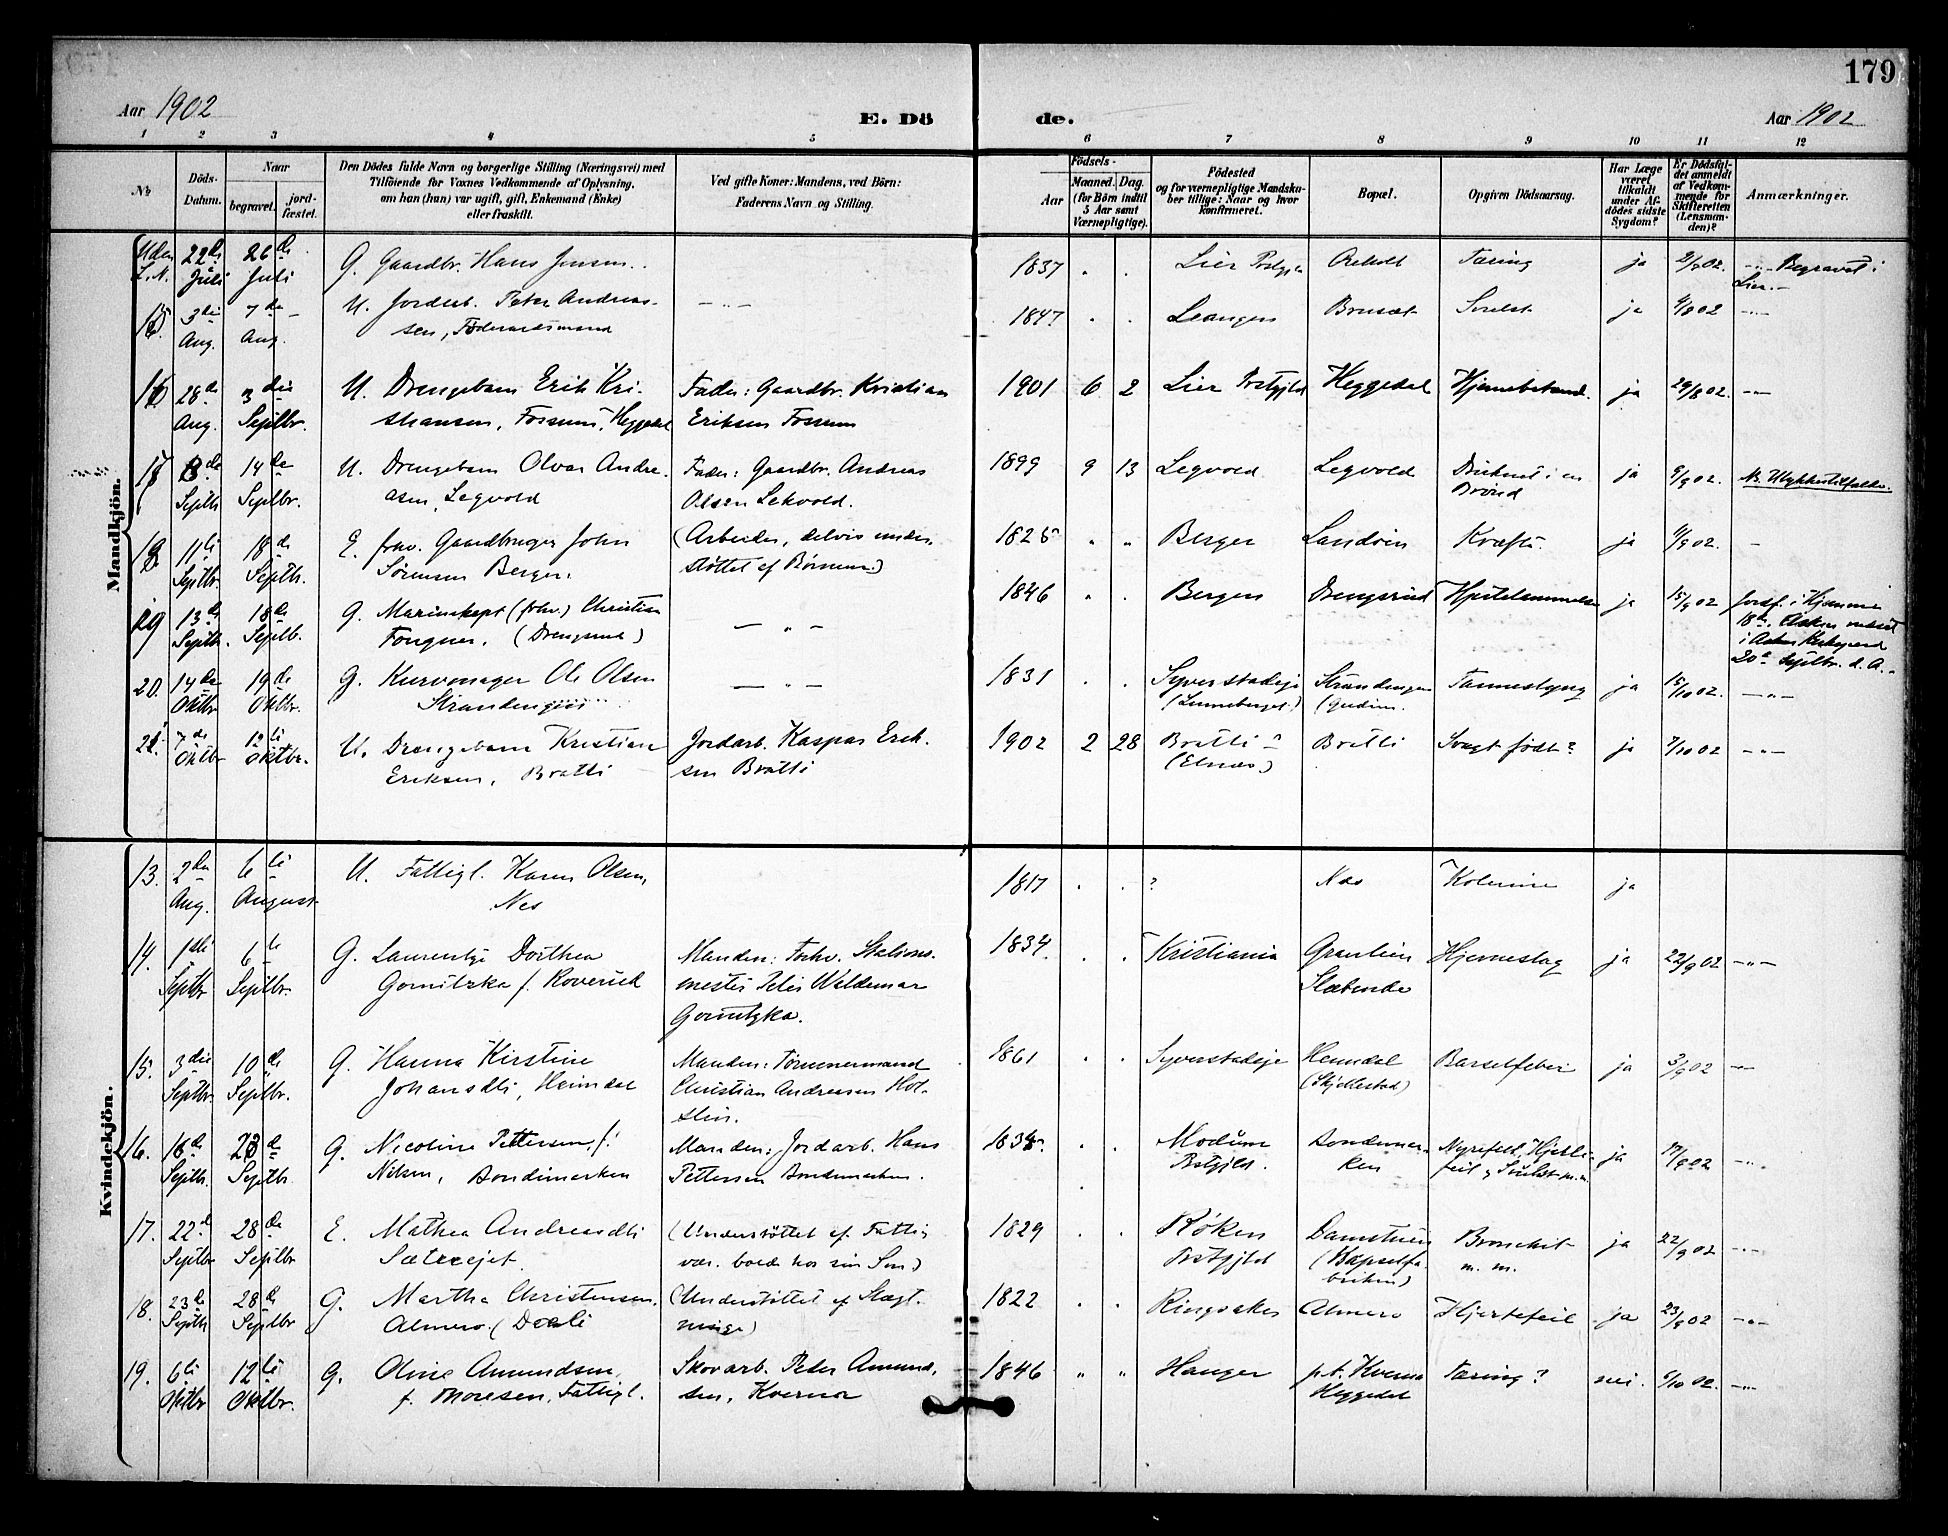 179
Aar 1902
E. Dö
de.
Aar 1902
1 2 3 4 5 6 7 8 9 10 11 12
No
Döds-Datum.
Naar
begravet.
jord-fæstet.
Den Dödes fulde Navn og borgerlige Stilling (Næringsvei) med
Tilföiende for Voxnes Vedkommende af Oplysning,
om han (hun) var ugift, gift, Enkemand (Enke)
eller fraskilt.
Ved gifte Koner: Mandens, ved Børn:
Faderens Navn og Stilling.
Födsels-
Aar
Maaned. Dag.
(for Börn indtil
5 Aar samt
Værnepligtige).
Födested
og for værnepligtige Mandskaber tillige: Naar og hvor
konfirmeret.
Bopæl.
Opgiven Dödsaarsag.
Har Læge
været
tilkaldt
under Afdödes sidste
Sygdom?
Er Dödsfaldet anmeldt
af Vedkommende for
Skifteretten
(Lensmanden)?
Anmærkninger.
Mandkjön.
Uden L.N. 22de Juli 26de Juli G. Gaardbr. Hans Jensen 1837 Lier Prstgj. Tæring ja 2/9 02. Begravet i
Lier.
3die Aug. 7de Aug. U. Jorderb. Peter Andreas-
sen, Føderaadsmand 1847 Leangen ja 02
16 28de Aug. 3die Septbr. U. Drengebarn Erik Kri-
stiansen, Fossum, Heggedal Fader: Gaardbr. Kristian
Eriksen Fossum 1901 6 2 Lier Prstgjld Heggedal Hjernebetænd. ja 29/8 02.
8de Septb. 14de Septbr. U. Drengebarn Olvar Andre-
asen, Legvold Fader: Gaardbr. Andreas
Olsen Lekvold. 1899 9 13 Legvold Legvold Druknet i en
Brønd ja 9/9 02. No. Ulykkestilfælde.
11te Septbr. 18de Septb. E. forhv. Gaardbruger John
Sørensen Berger. (Arbeider, delvis under-
støttet af Børnene) 1825 Berger Landøen Kræft. ja 02.
13de Septbr. 18de Septb. G. Marinekapt (forhv.) Christian
Fougner. (Drengsrud) 1846 Bergen Drengsrud Hjertelammelse ja 15/9 02 Jordf. i Hjemme
18de.
i Asker Kirkegaard
20de Septbr. d. A.
20. 14de Oktbr. 19de Oktbr. G. Kurvmager Ole Olsen
Strandengen 1831 Syverstadeje
(Lunneberget) Strandengen
ja 15/10 02.
21. 7de Oktbr. 12te Oktbr. U. Drengebarn Kristian
Eriksen, Bratli Jordarb. Kaspar Erik-
sen Bratli 1902 2 28 Bratli
(Elnæs) Bratli Svagt født? ja 7/10 02
Kvindekjön.
13. 2den Aug. 6te August U. Fattigl. Karen Olsen,
Nes 1817 ? Nes Kolerine ja
14. 1ste Septbr 6te Septbr. G. Laurentze Dorthea
Gornitzka f. Roverud Manden: Forhv. Stations-
mester Peter Waldemar
Gornitzka. 1834. Kristiania Granlien
Slæbende Hjerneslag ja 22/9 02
15. 3die Septbr 10de Septbr. G. Hanna Kirstine
Johansdtr, Heimdal Manden: Tømmermand
Christian Andreasen Hol-
stein. 1861 Syverstadeje Hemdal
(Skjellestad) Barselfeber ja 3/9 02
16. 16de Septbr. 23de Septbr G. Nicoline Pettersen, f.
Nilsen, Bondimarken Manden: Jordarb. Hans
Pettersen Bondimarken. Modum
Prstgjld. Bondimar-
ken Nyrefeil, Hjerte-
feil og Svulst m.m. ja 17/9 02
17. 22de Septbr 28de Septbr E. Mathea Andreasdtr
Sætreejet. (Understøttet af Fattig-
væs. boede hos sin Søn) 1829 Røken
Prstgjld Damstuen
(Kapselfa-
briken) Bronchit
m. m. ja 22/9 02
18. 23de Septb 28de Septbr G. Martha Christensen,
Almero. (Understøttet af Slægt-
ninge) 1822 Ringsaker Almero Hjertefeil ja 23/9 02
19. 6te Oktbr 12te Oktbr. G. Oline Amundsen,
f. Thoresen, Fattigl. Skovarb. Peter Amund-
sen, Kverna 1846 Hanger p.t. Kverna
Heggedal Tæring? nei. 6/10 02.